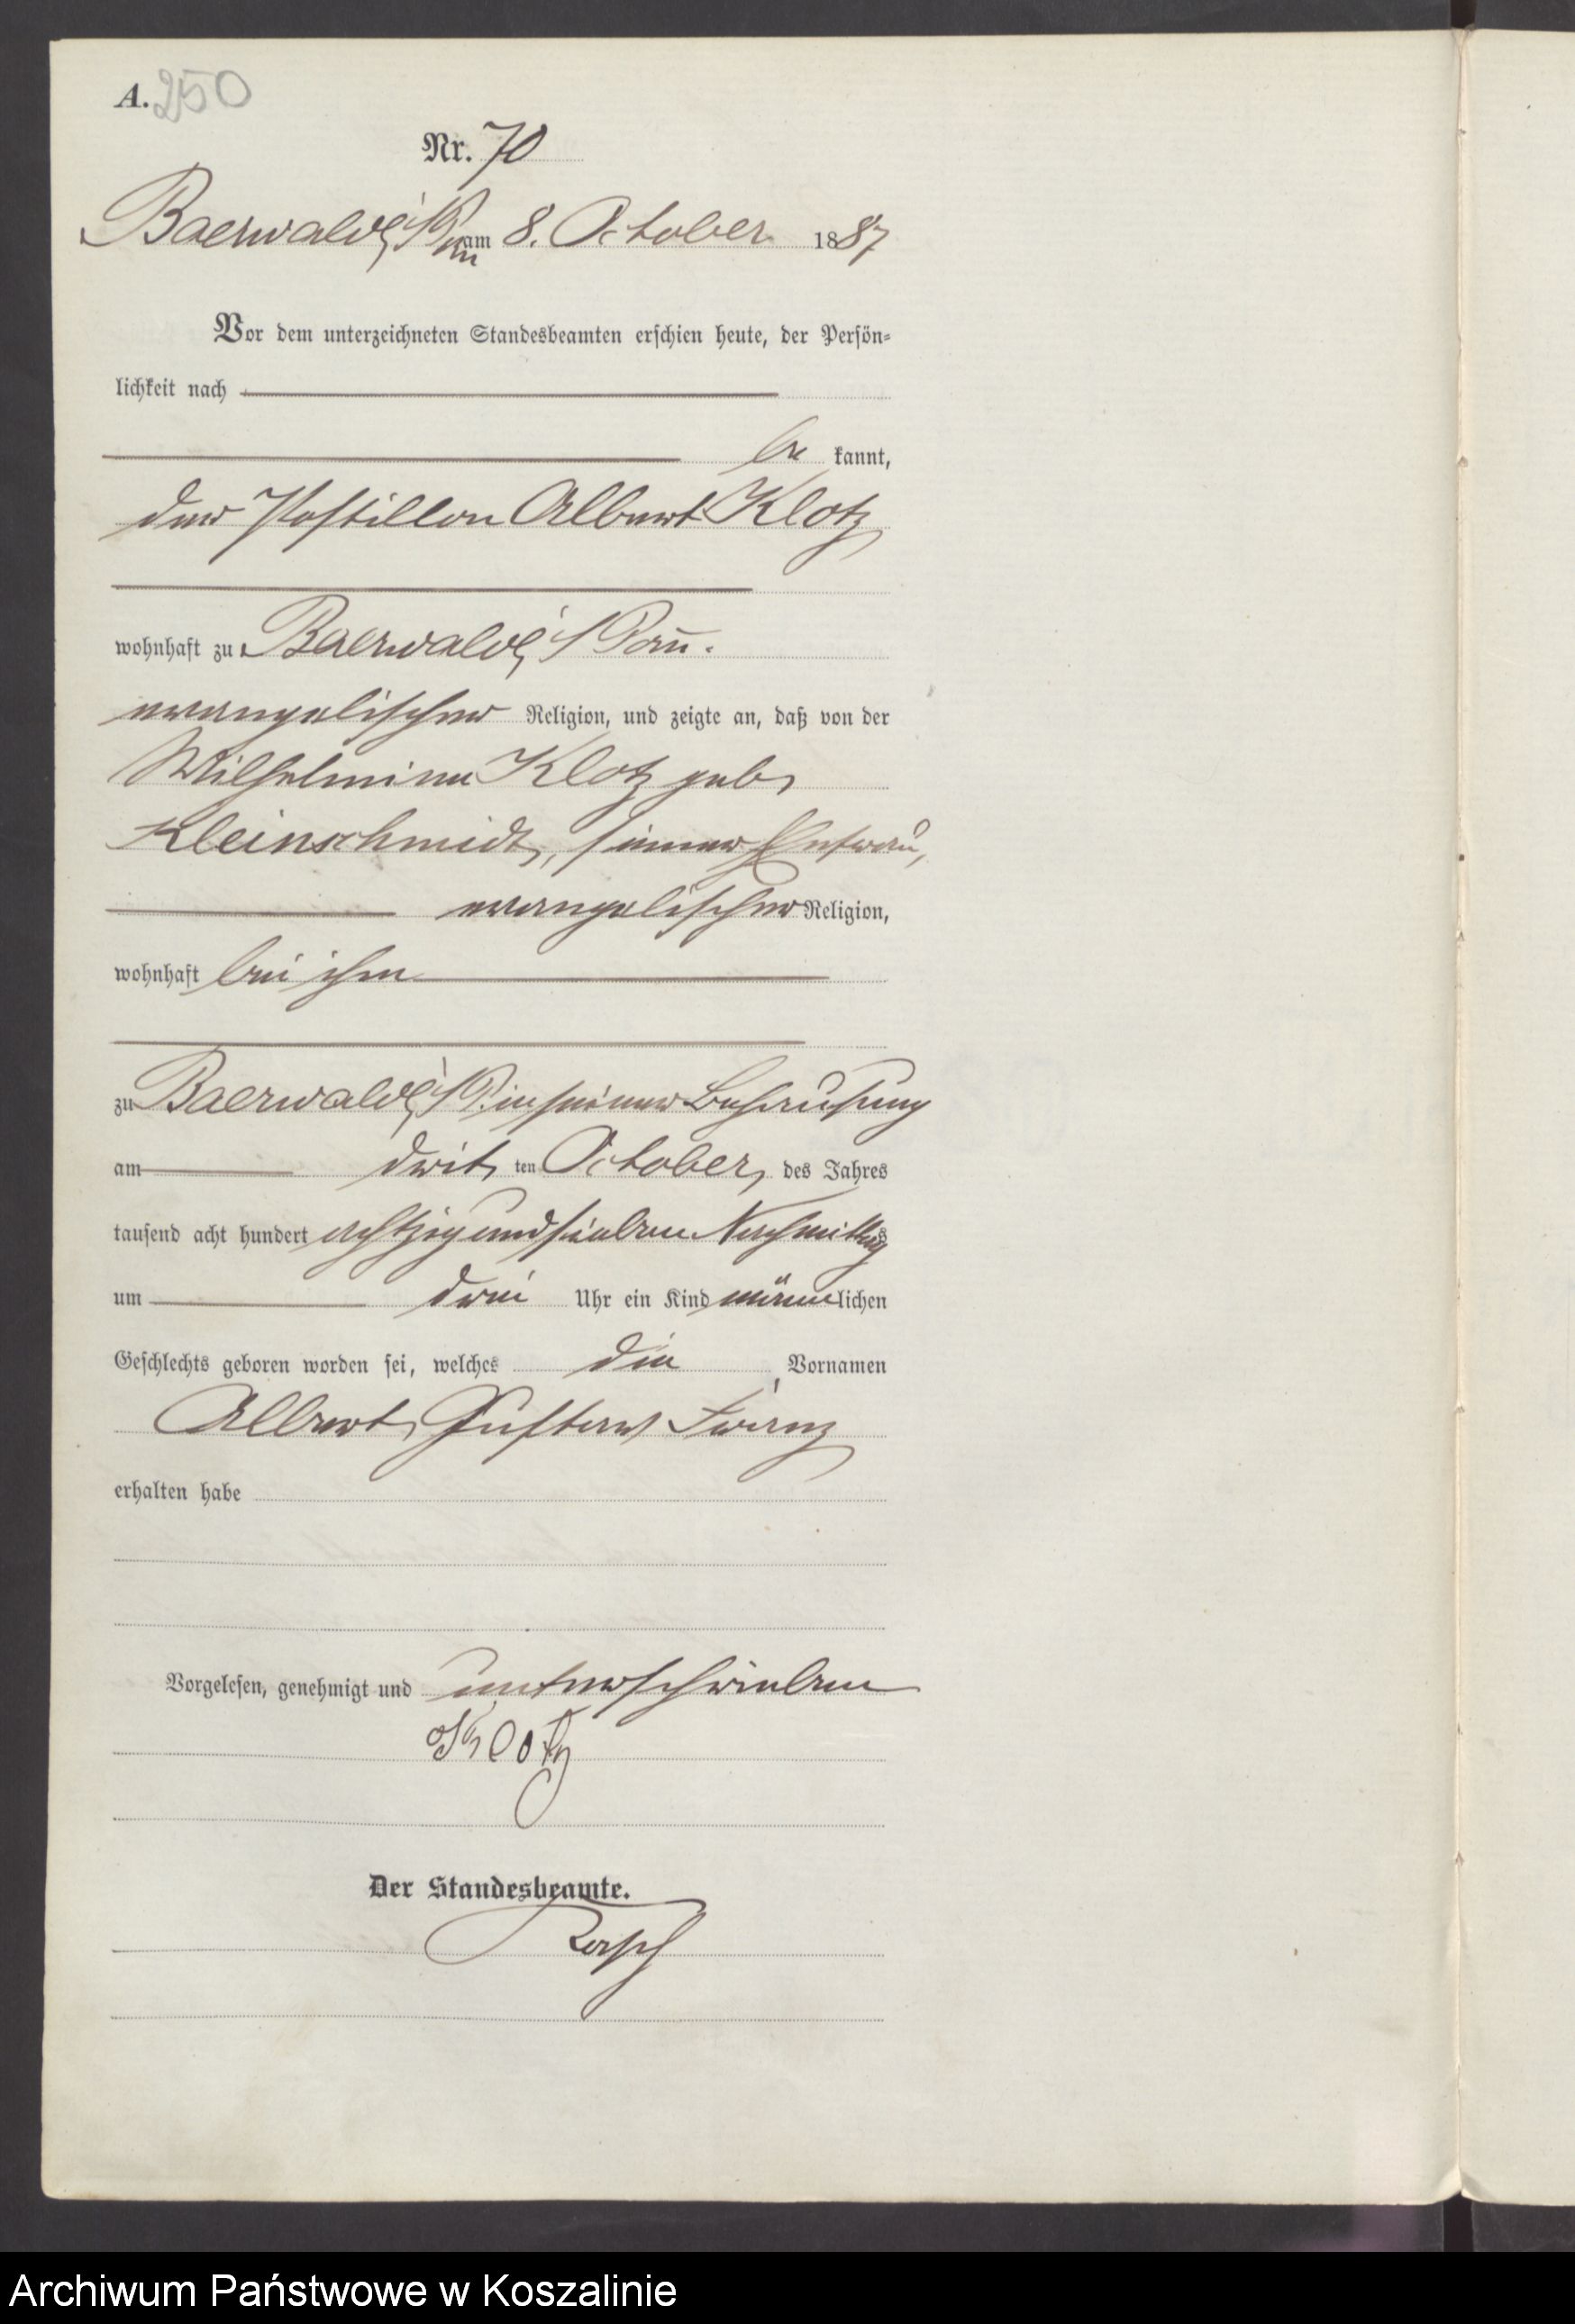 A. 250
Nr. 70
Baerwalde i/Pom am 8. October 1887
Vor dem unterzeichneten Standesbeamten erschien heute, der Persön-
lichkeit nach
be kannt,
der Postillon Albert Klotz
wohnhaft zu Baerwalde i/Pom.
evangelischer Religion, und zeigte an, daß von der
Wilhelmine Klotz geb.
Kleinschmidt, seiner Ehefrau,
evangelischer Religion,
wohnhaft bei ihm
zu Baerwalde i/P. in seiner Behausung
am drit ten October, des Jahres
tausend acht hundert achtzig und sieben Nachmittags
um drei Uhr ein Kind männlichen
Geschlechts geboren worden sei, welches die Vornamen
Albert, Gustav Franz
erhalten habe
Vorgelesen, genehmigt und unterschrieben
Klotz
Der Standesbeamte.
Archiwum Państwowe w Koszalinie